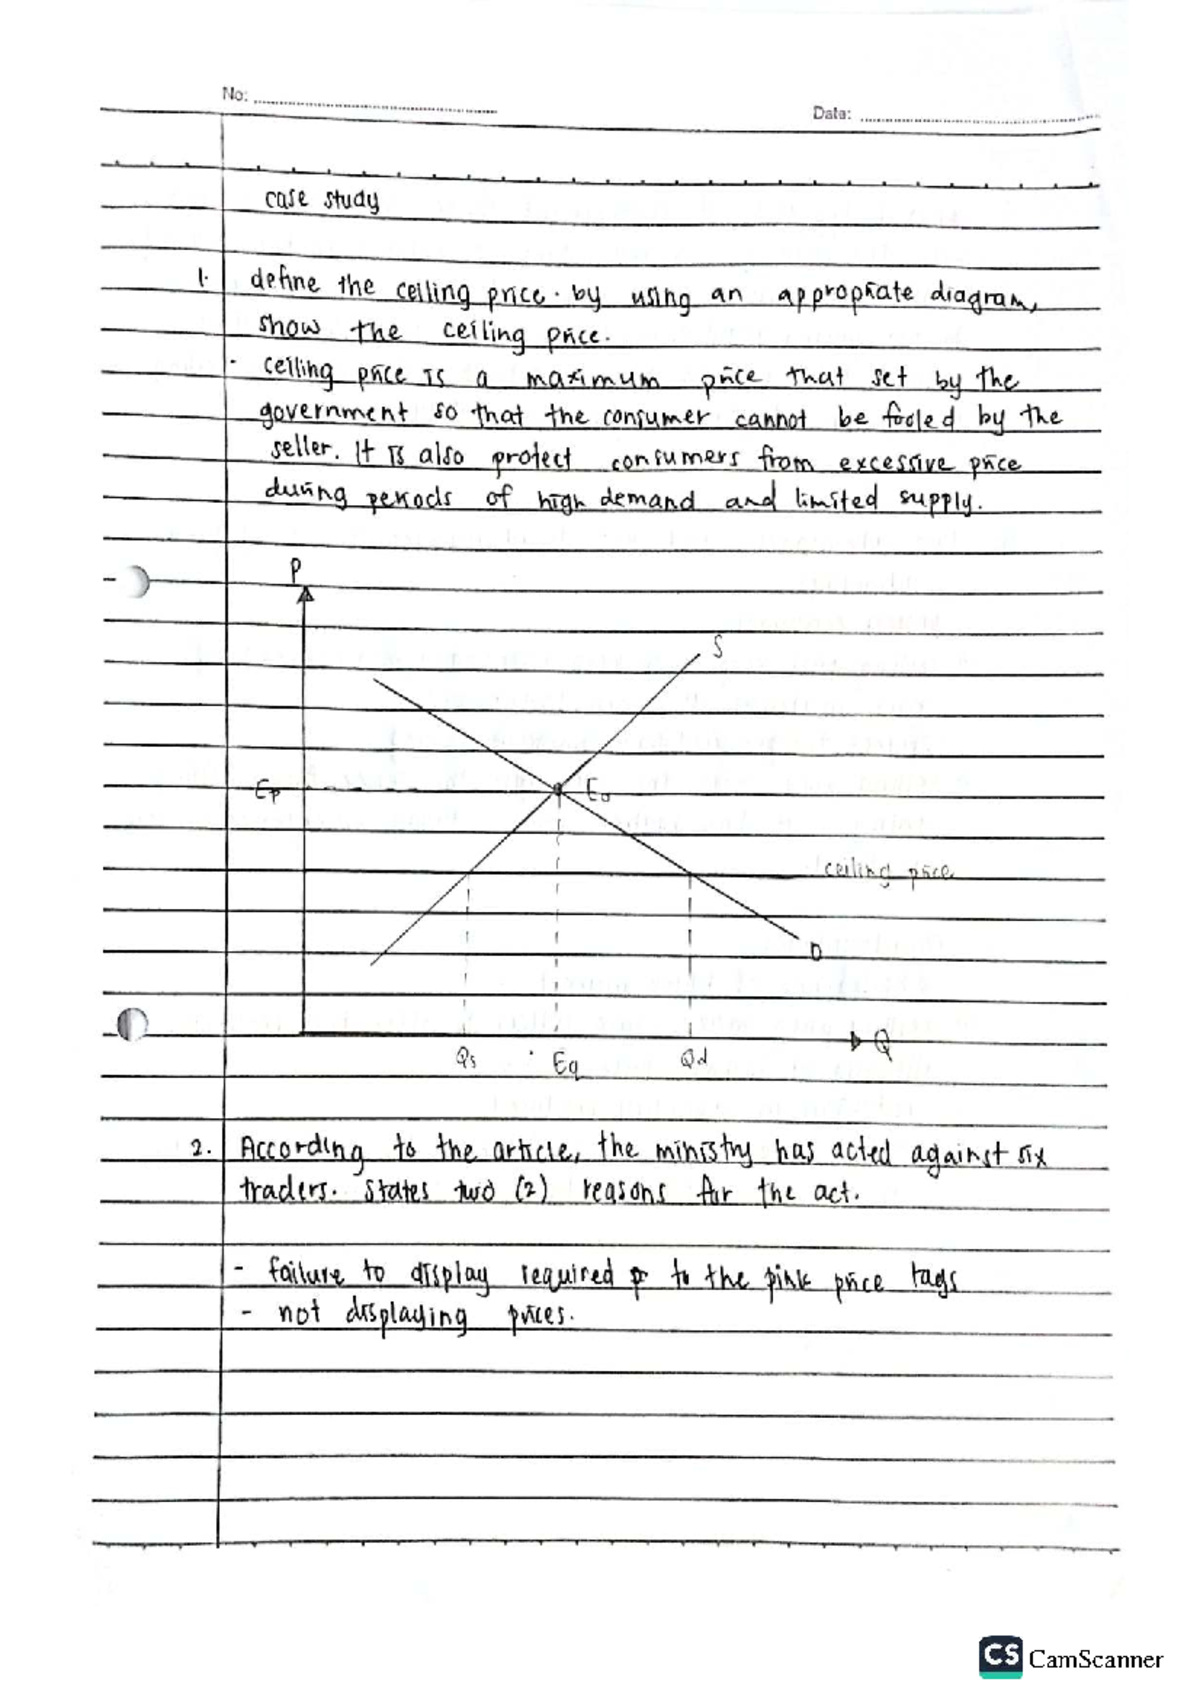 No:
Date:
case study
1. define the ceiling price. by using an appropriate diagram,
show the ceiling price.
- ceiling price is a maximum price that set by the
government so that the consumer cannot be fooled by the
seller. It is also protect consumers from excessive price
during periods of high demand and limited supply.
P
S
Ep
E0
ceiling price
D
Q
Qs
Eq
Qd
2. According to the article, the ministry has acted against six
traders. States two (2) reasons for the act.
- failure to display required p to the pink price tags
- not displaying prices.
CS CamScanner